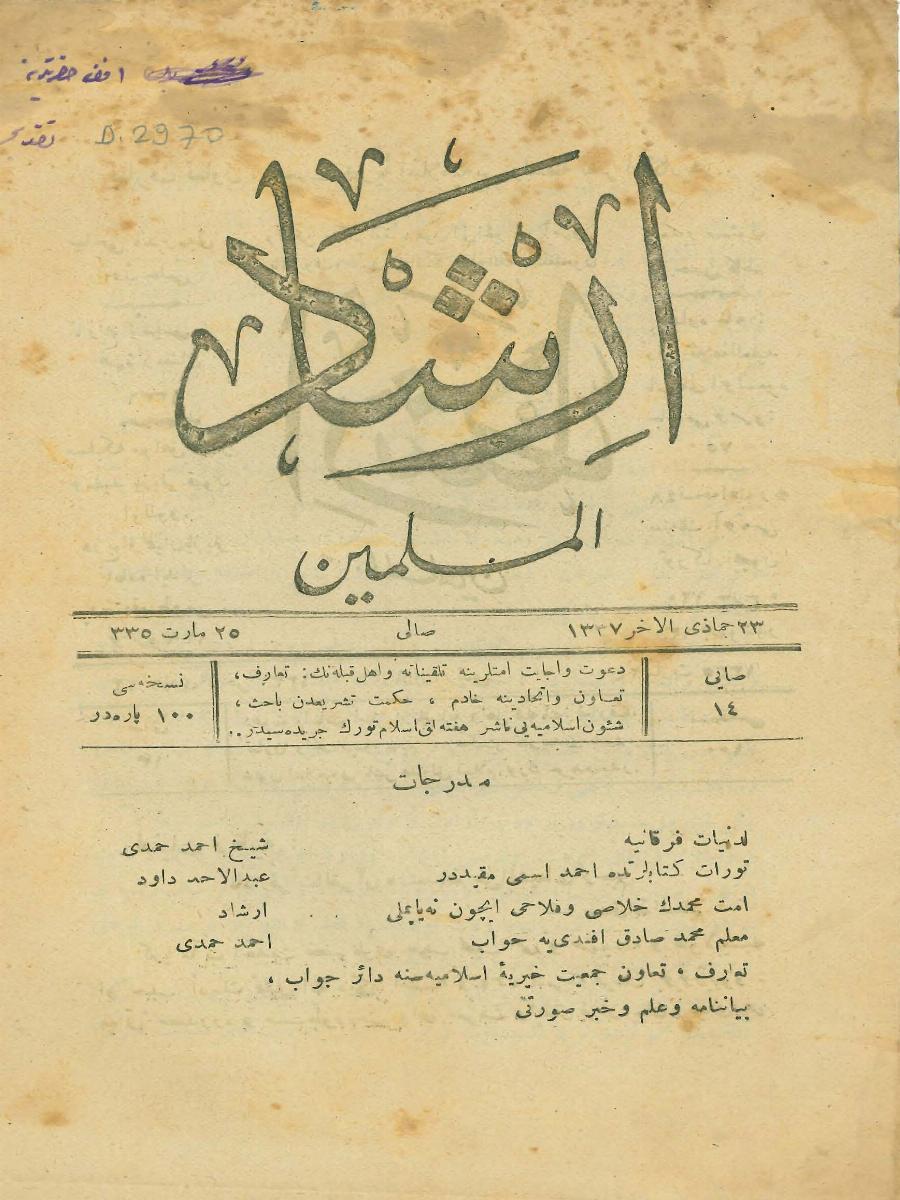 افندی حضرتلرینه
D. 2970
ارشاد
المسلمین
٢٣ جماذی الاخر ١٣٣٧
صالی
٢٥ مارت ٣٣٥
صایی
١٤
دعوت واجابت امتلرینه تلقیناته واهل قبله‌نك: تعارف،
تعاون واتحادینه خادم ، حکمت تشریعدن باحث ،
شئون اسلامیه‌یی ناشر هفته‌لق اسلام تورك جریده‌سیدر..
نسخه‌سی
١٠٠ پاره‌در
مدرجات
لدنیات فرقانیه شیخ احمد حمدی
تورات کتابلرنده احمد اسمی مقیددر عبدالاحد داود
امت محمدك خلاصی وفلاحی ایچون نه‌یاپملی ارشاد
معلم محمد صادق افندی‌یه جواب احمد حمدی
تعارف ، تعاون جمعیت خیریهٔ اسلامیه‌سنه دائر جواب ،
بیاننامه وعلم وخبر صورتی